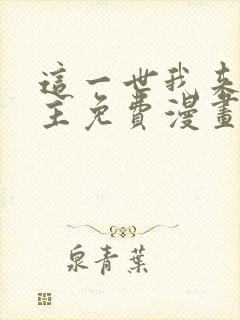 這一世我來
主免費漫畫
泉青葉